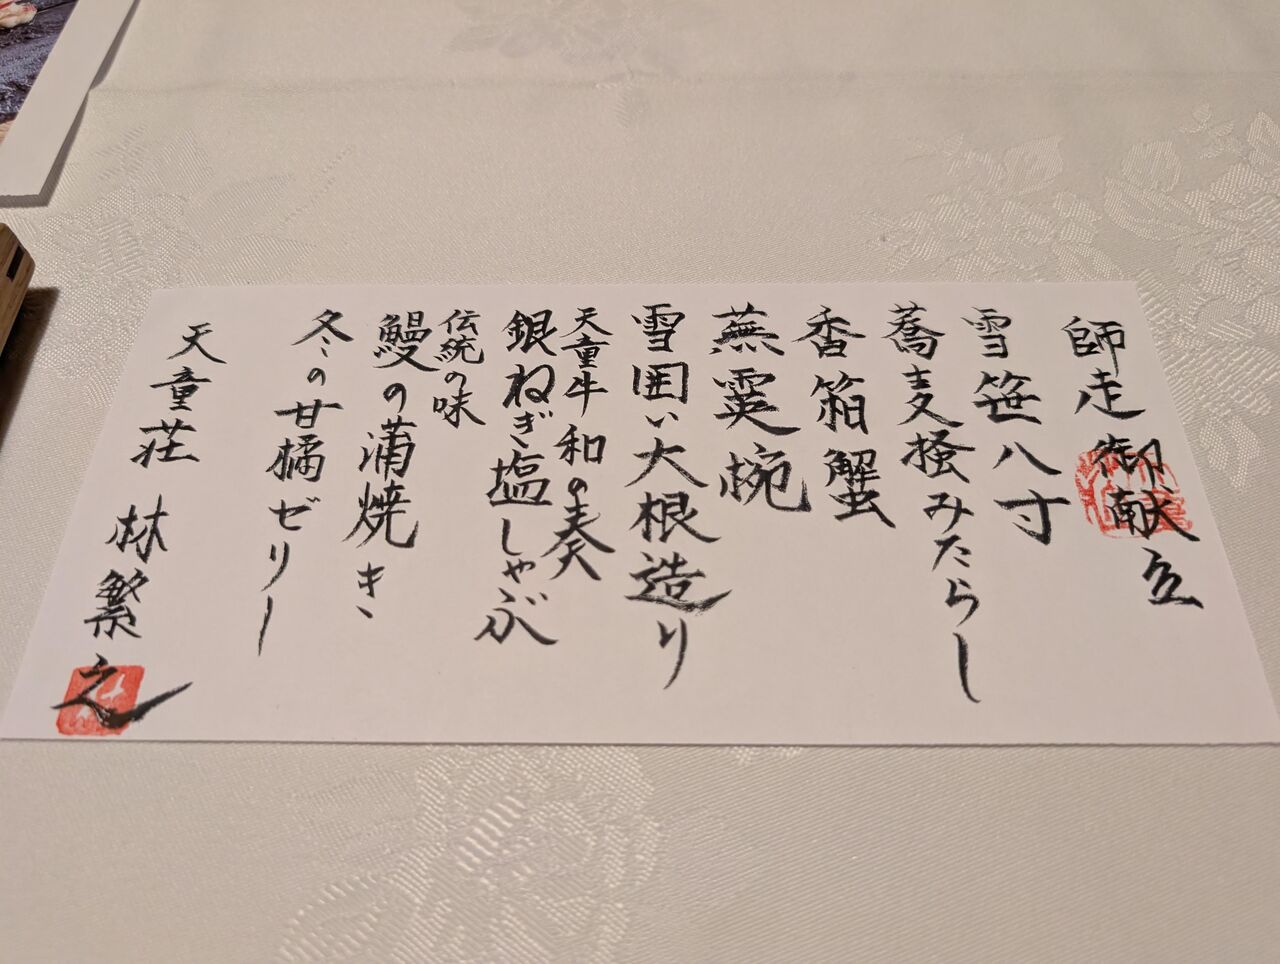 師走御献立
雪笹八寸
蕎麦掻みたらし
香箱蟹
蕪霙椀
雪囲い大根造り
天童牛和の奏
銀ねぎ塩しゃぶ
伝統の味
鰻の蒲焼き
冬の甘橘ゼリー
天童荘 林繁之